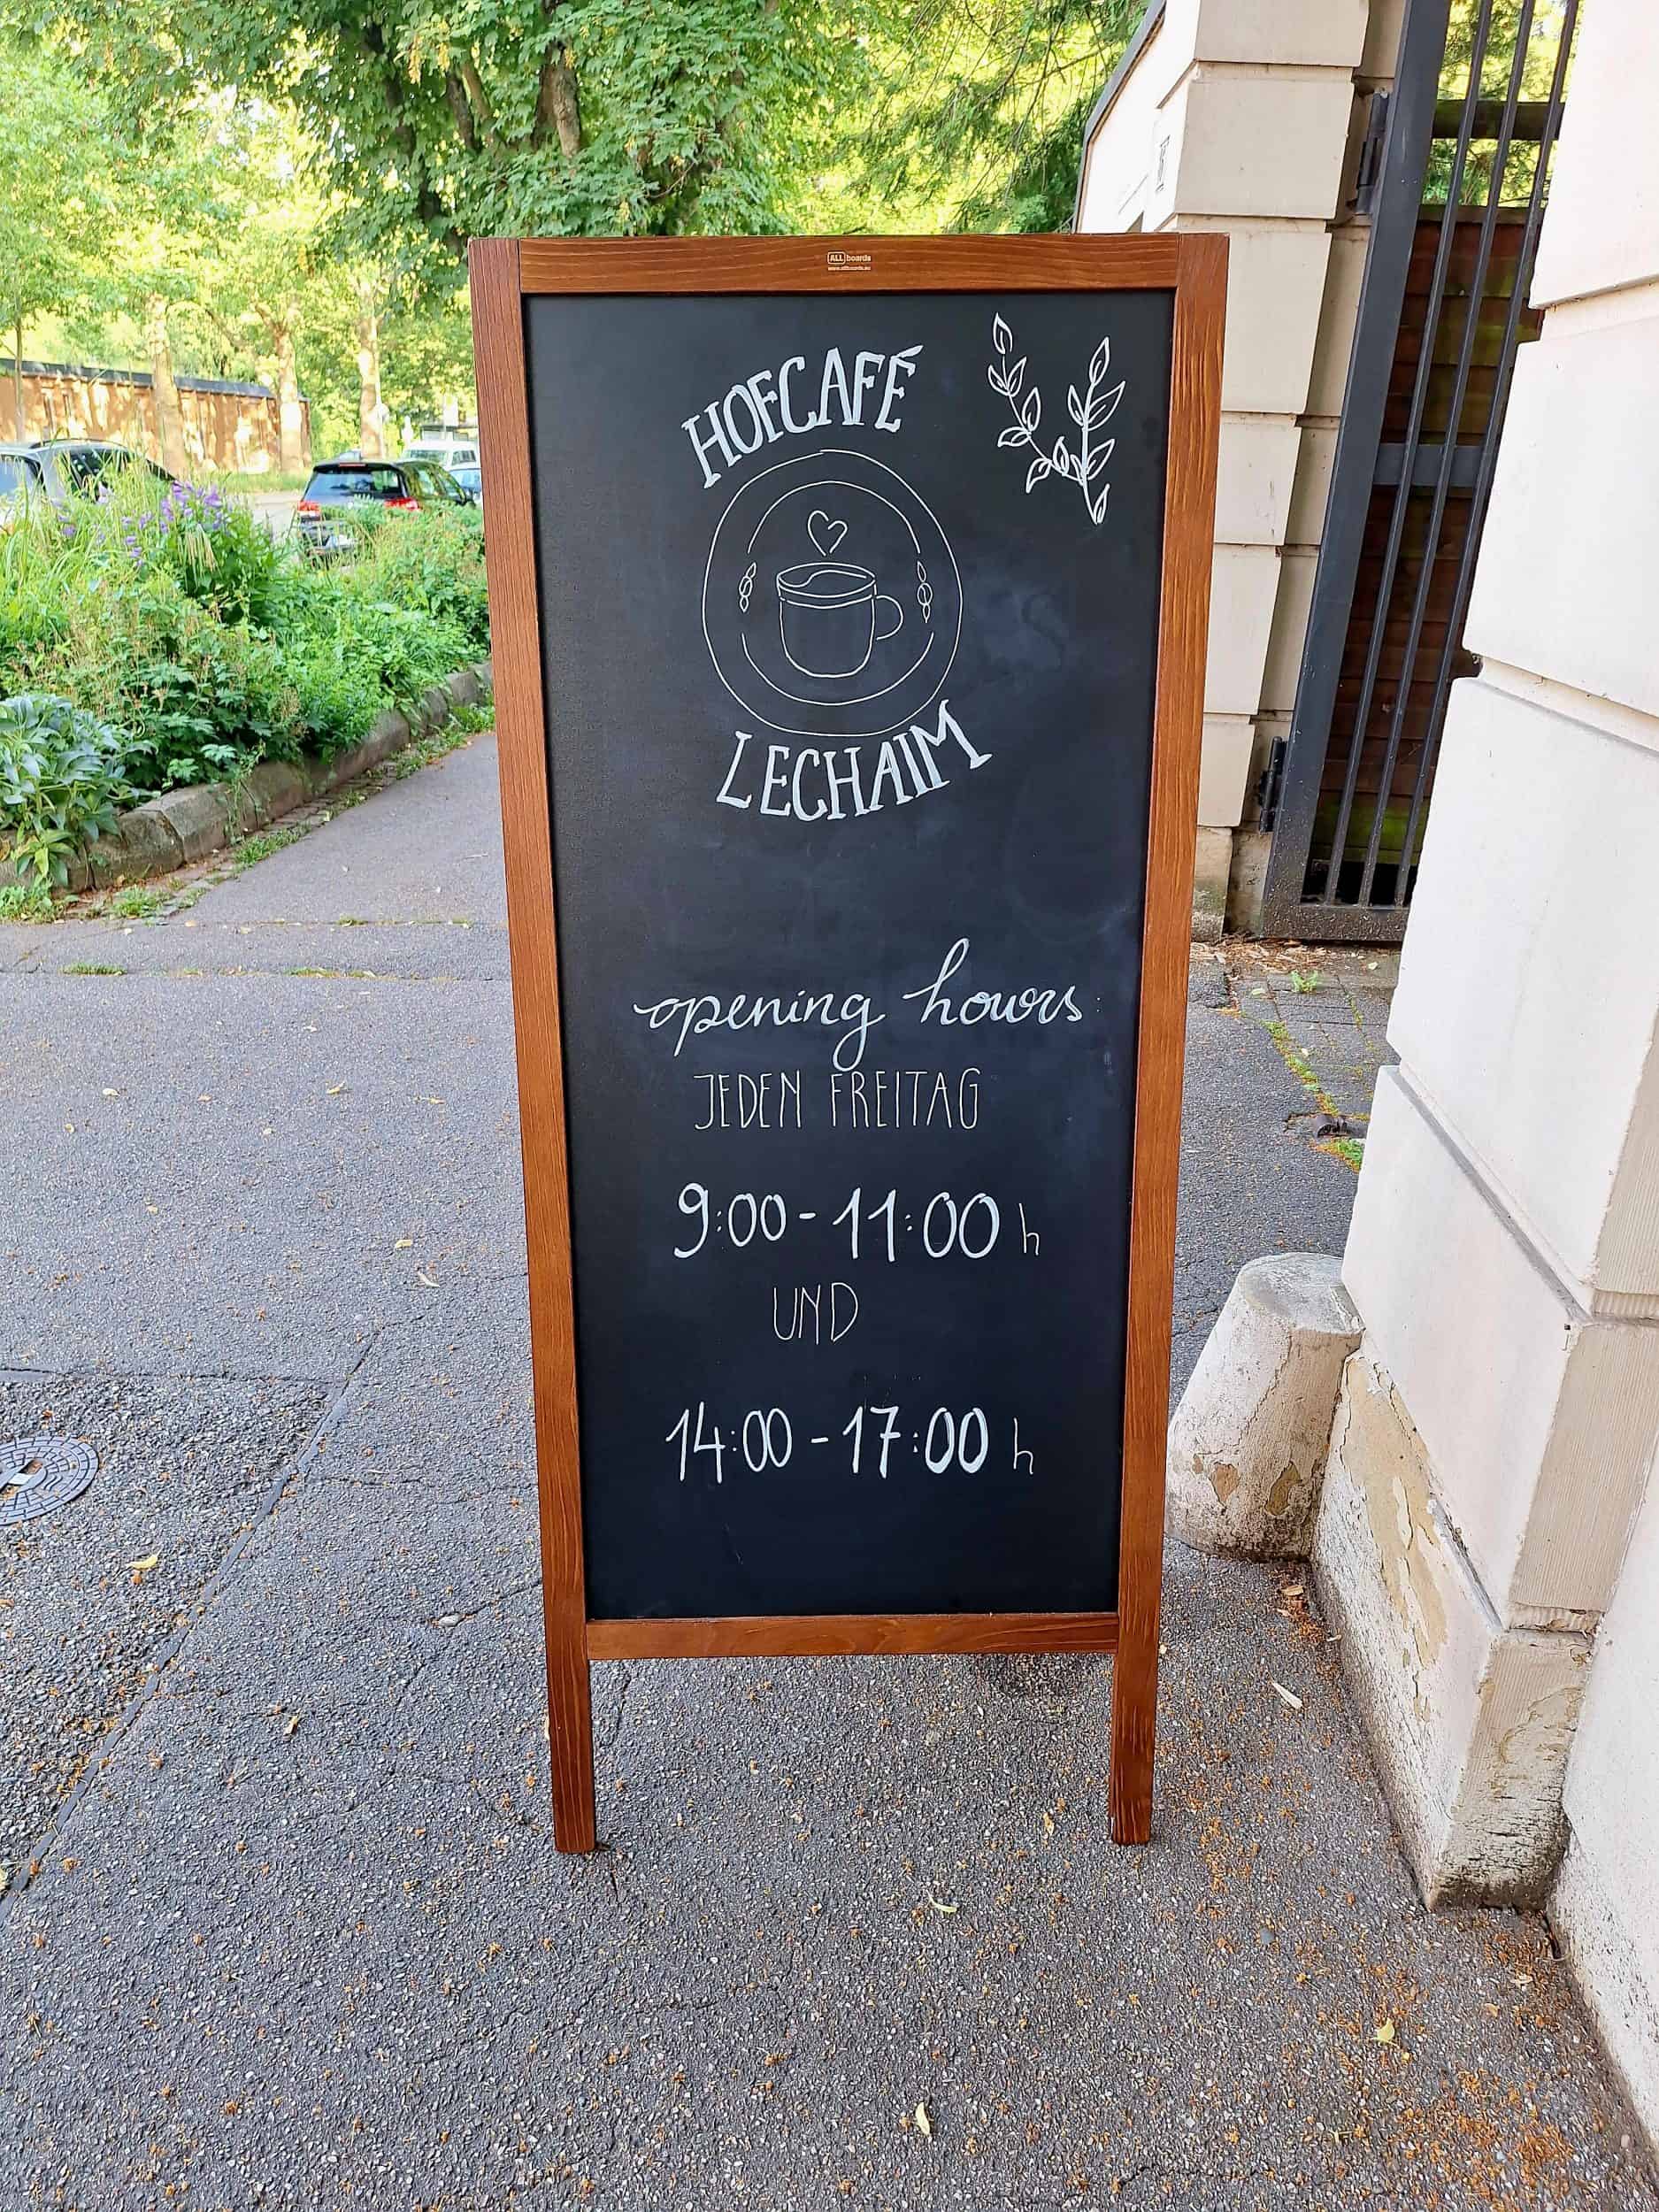 ALL boards
www.allboards.eu
HOFCAFÉ
LECHAIM
opening hours:
JEDEN FREITAG
9:00-11:00 h
UND
14:00-17:00 h